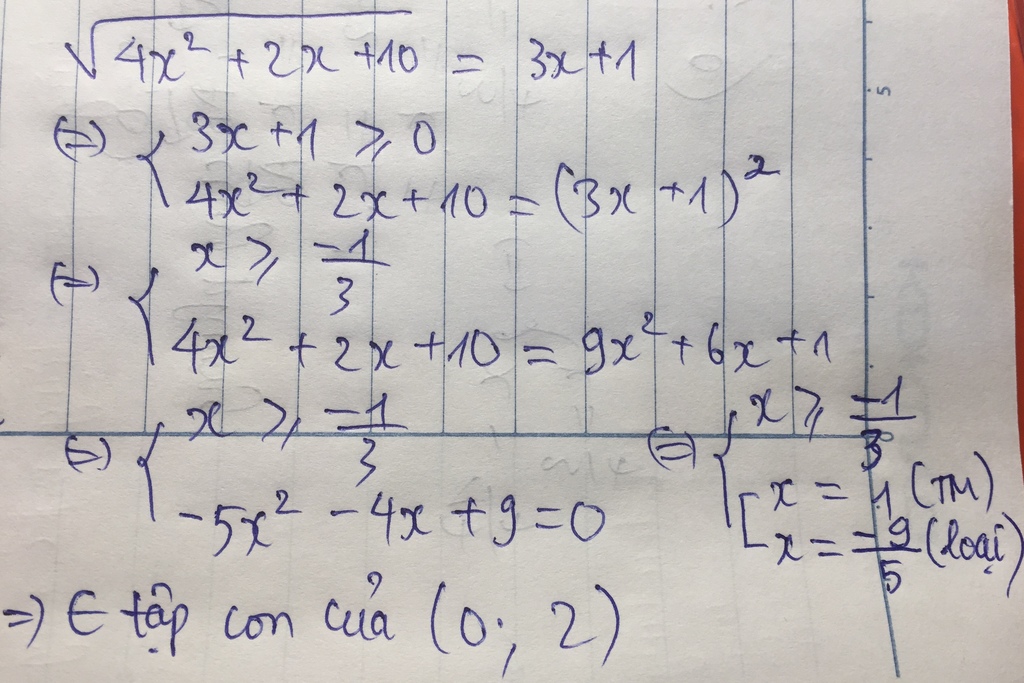 √(4x² + 2x + 10) = 3x + 1
(=) { 3x + 1 ⩾ 0
4x² + 2x + 10 = (3x + 1)²
(=) { x ⩾ -1/3
4x² + 2x + 10 = 9x² + 6x + 1
(=) { x ⩾ -1/3
-5x² - 4x + 9 = 0
(=) { x ⩾ -1/3
[ x = 1 (TM)
x = -9/5 (loại)
=) ∈ tập con của (0; 2)
5